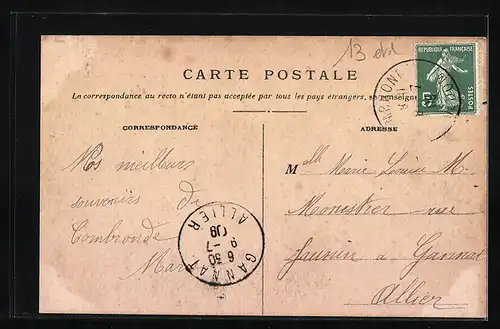 13 dol
CARTE POSTALE
La correspondance au recto n'étant pas acceptée par tous les pays étrangers, se renseigner
CORRESPONDANCE
ADRESSE
REPUBLIQUE FRANÇAISE
5c
POSTES
Nos meilleurs
souvenirs de
Combronde
Marie
Mlle Marie Louise M.
Monestier rue
à Gannat
Allier
GANNAT
6 30
9 -7
09
ALLIER